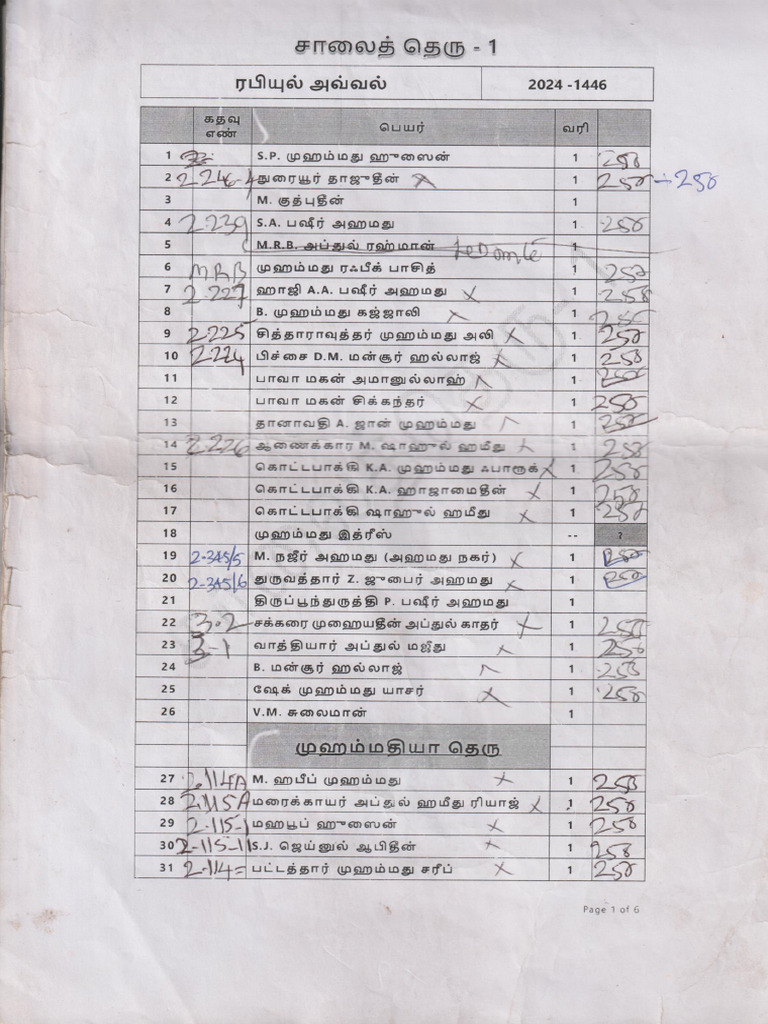 சாலைத் தெரு - 1
ரபியுல் அவ்வல் 2024 -1446
கதவு எண் பெயர் வரி
1 S.P. முஹம்மது ஹுஸைன் 1 250
2 2.246-4 துரையூர் தாஜுதீன் x 1 250 - 250
3 M. குத்புதீன் 1
4 2.239 S.A. பஷீர் அஹமது 1 250
5 M.R.B. அப்துல் ரஹ்மான் 1
6 MRB முஹம்மது ரஃபீக் பாசித் 1 250
7 2.227 ஹாஜி A.A. பஷீர் அஹமது x 1 250
8 B. முஹம்மது கஜ்ஜாலி x 1 250
9 2.225 சித்தாராவுத்தர் முஹம்மது அலி x 1 250
10 2.224 பிச்சை D.M. மன்சூர் ஹல்லாஜ் x 1 250
11 பாவா மகன் அமானுல்லாஹ் x 1 250
12 பாவா மகன் சிக்கந்தர் x 1 250
13 தானாவதி A. ஜான் முஹம்மது x 1 250
14 2.226 ஆணைக்கார M. ஷாஹுல் ஹமீது x 1 250
15 கொட்டபாக்கி K.A. முஹம்மது ஃபாரூக் x 1 250
16 கொட்டபாக்கி K.A. ஹாஜாமைதீன் x 1 250
17 கொட்டபாக்கி ஷாஹுல் ஹமீது x 1 250
18 முஹம்மது இத்ரீஸ் -- ?
19 2-345/5 M. நஜீர் அஹமது (அஹமது நகர்) x 1 250
20 2-345/6 துருவத்தார் Z. ஜுபைர் அஹமது x 1 250
21 திருப்பூந்துருத்தி P. பஷீர் அஹமது 1
22 3.2 சக்கரை முஹையதீன் அப்துல் காதர் x 1 250
23 3-1 வாத்தியார் அப்துல் மஜீது x 1 250
24 B. மன்சூர் ஹல்லாஜ் x 1 250
25 ஷேக் முஹம்மது யாசர் x 1 250
26 V.M. சுலைமான் 1
முஹம்மதியா தெரு
27 2.114A M. ஹபீப் முஹம்மது x 1 250
28 2.115A மரைக்காயர் அப்துல் ஹமீது ரியாஜ் x 1 250
29 2.115-1 மஹபூப் ஹுஸைன் x 1 250
30 2-115-11 S.J. ஜெய்னுல் ஆபிதீன் x 1 250
31 2.114= பட்டத்தார் முஹம்மது சரீப் x 1 250
Page 1 of 6